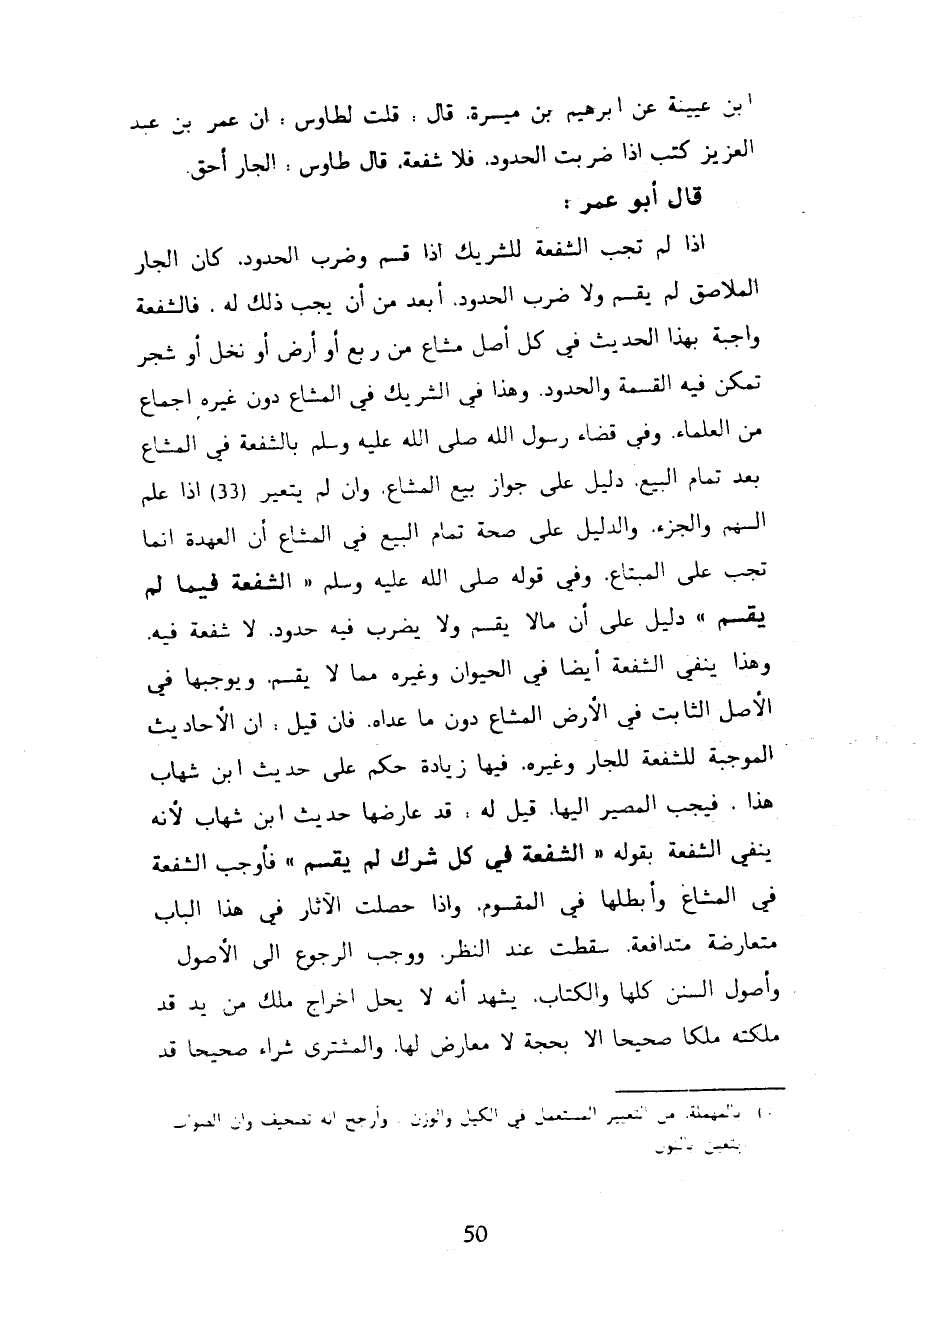 ابن عيينة عن ابرهيم بن ميسرة، قال : قلت لطاوس : ان عمر بن عبد
العزيز كتب اذا ضربت الحدود، فلا شفعة، قال طاوس : الجار أحق.
قال أبو عمر :
اذا لم تجب الشفعة للشريك اذا قسم وضرب الحدود، كان الجار
الملاصق لم يقسم ولا ضرب الحدود، أبعد من أن يجب ذلك له . فالشفعة
واجبة بهذا الحديث في كل أصل مشاع من ربع أو أرض أو نخل أو شجر
تمكن فيه القسمة والحدود، وهذا في الشريك في المشاع دون غيره اجماع
من العلماء، وفي قضاء رسول الله صلى الله عليه وسلم بالشفعة في المشاع
بعد تمام البيع، دليل على جواز بيع المشاع، وان لم يتعير (33) اذا علم
السهم والجزء، والدليل على صحة تمام البيع في المشاع أن العهدة انما
تجب على المبتاع، وفي قوله صلى الله عليه وسلم « الشفعة فيما لم
يقسم » دليل على أن مالا يقسم ولا يضرب فيه حدود، لا شفعة فيه،
وهذا ينفي الشفعة أيضا في الحيوان وغيره مما لا يقسم، ويوجبها في
الأصل الثابت في الأرض المشاع دون ما عداه، فان قيل : ان الأحاديث
الموجبة للشفعة للجار وغيره، فيها زيادة حكم على حديث ابن شهاب
هذا . فيجب المصير اليها، قيل له : قد عارضها حديث ابن شهاب لأنه
ينفي الشفعة بقوله « الشفعة في كل شرك لم يقسم » فأوجب الشفعة
في المشاع وأبطلها في المقسوم، واذا حصلت الآثار في هذا الباب
متعارضة متدافعة، سقطت عند النظر، ووجب الرجوع الى الأصول
وأصول السنن كلها والكتاب، يشهد أنه لا يحل اخراج ملك من يد قد
ملكته ملكا صحيحا الا بحجة لا معارض لها، والمشترى شراء صحيحا قد
بالمهملة، من التعيير المستعمل في الكيل والوزن . وأرجح انه تصحيف وان الصواب
يتعين بالنون
50